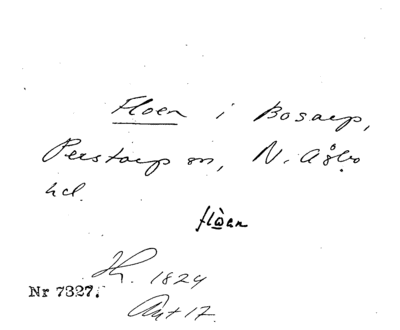 Floen i Bosarp,
Perstorp sn, N. Åsbo
hd.
flòen
1829
Nr 7327.
Ant 17